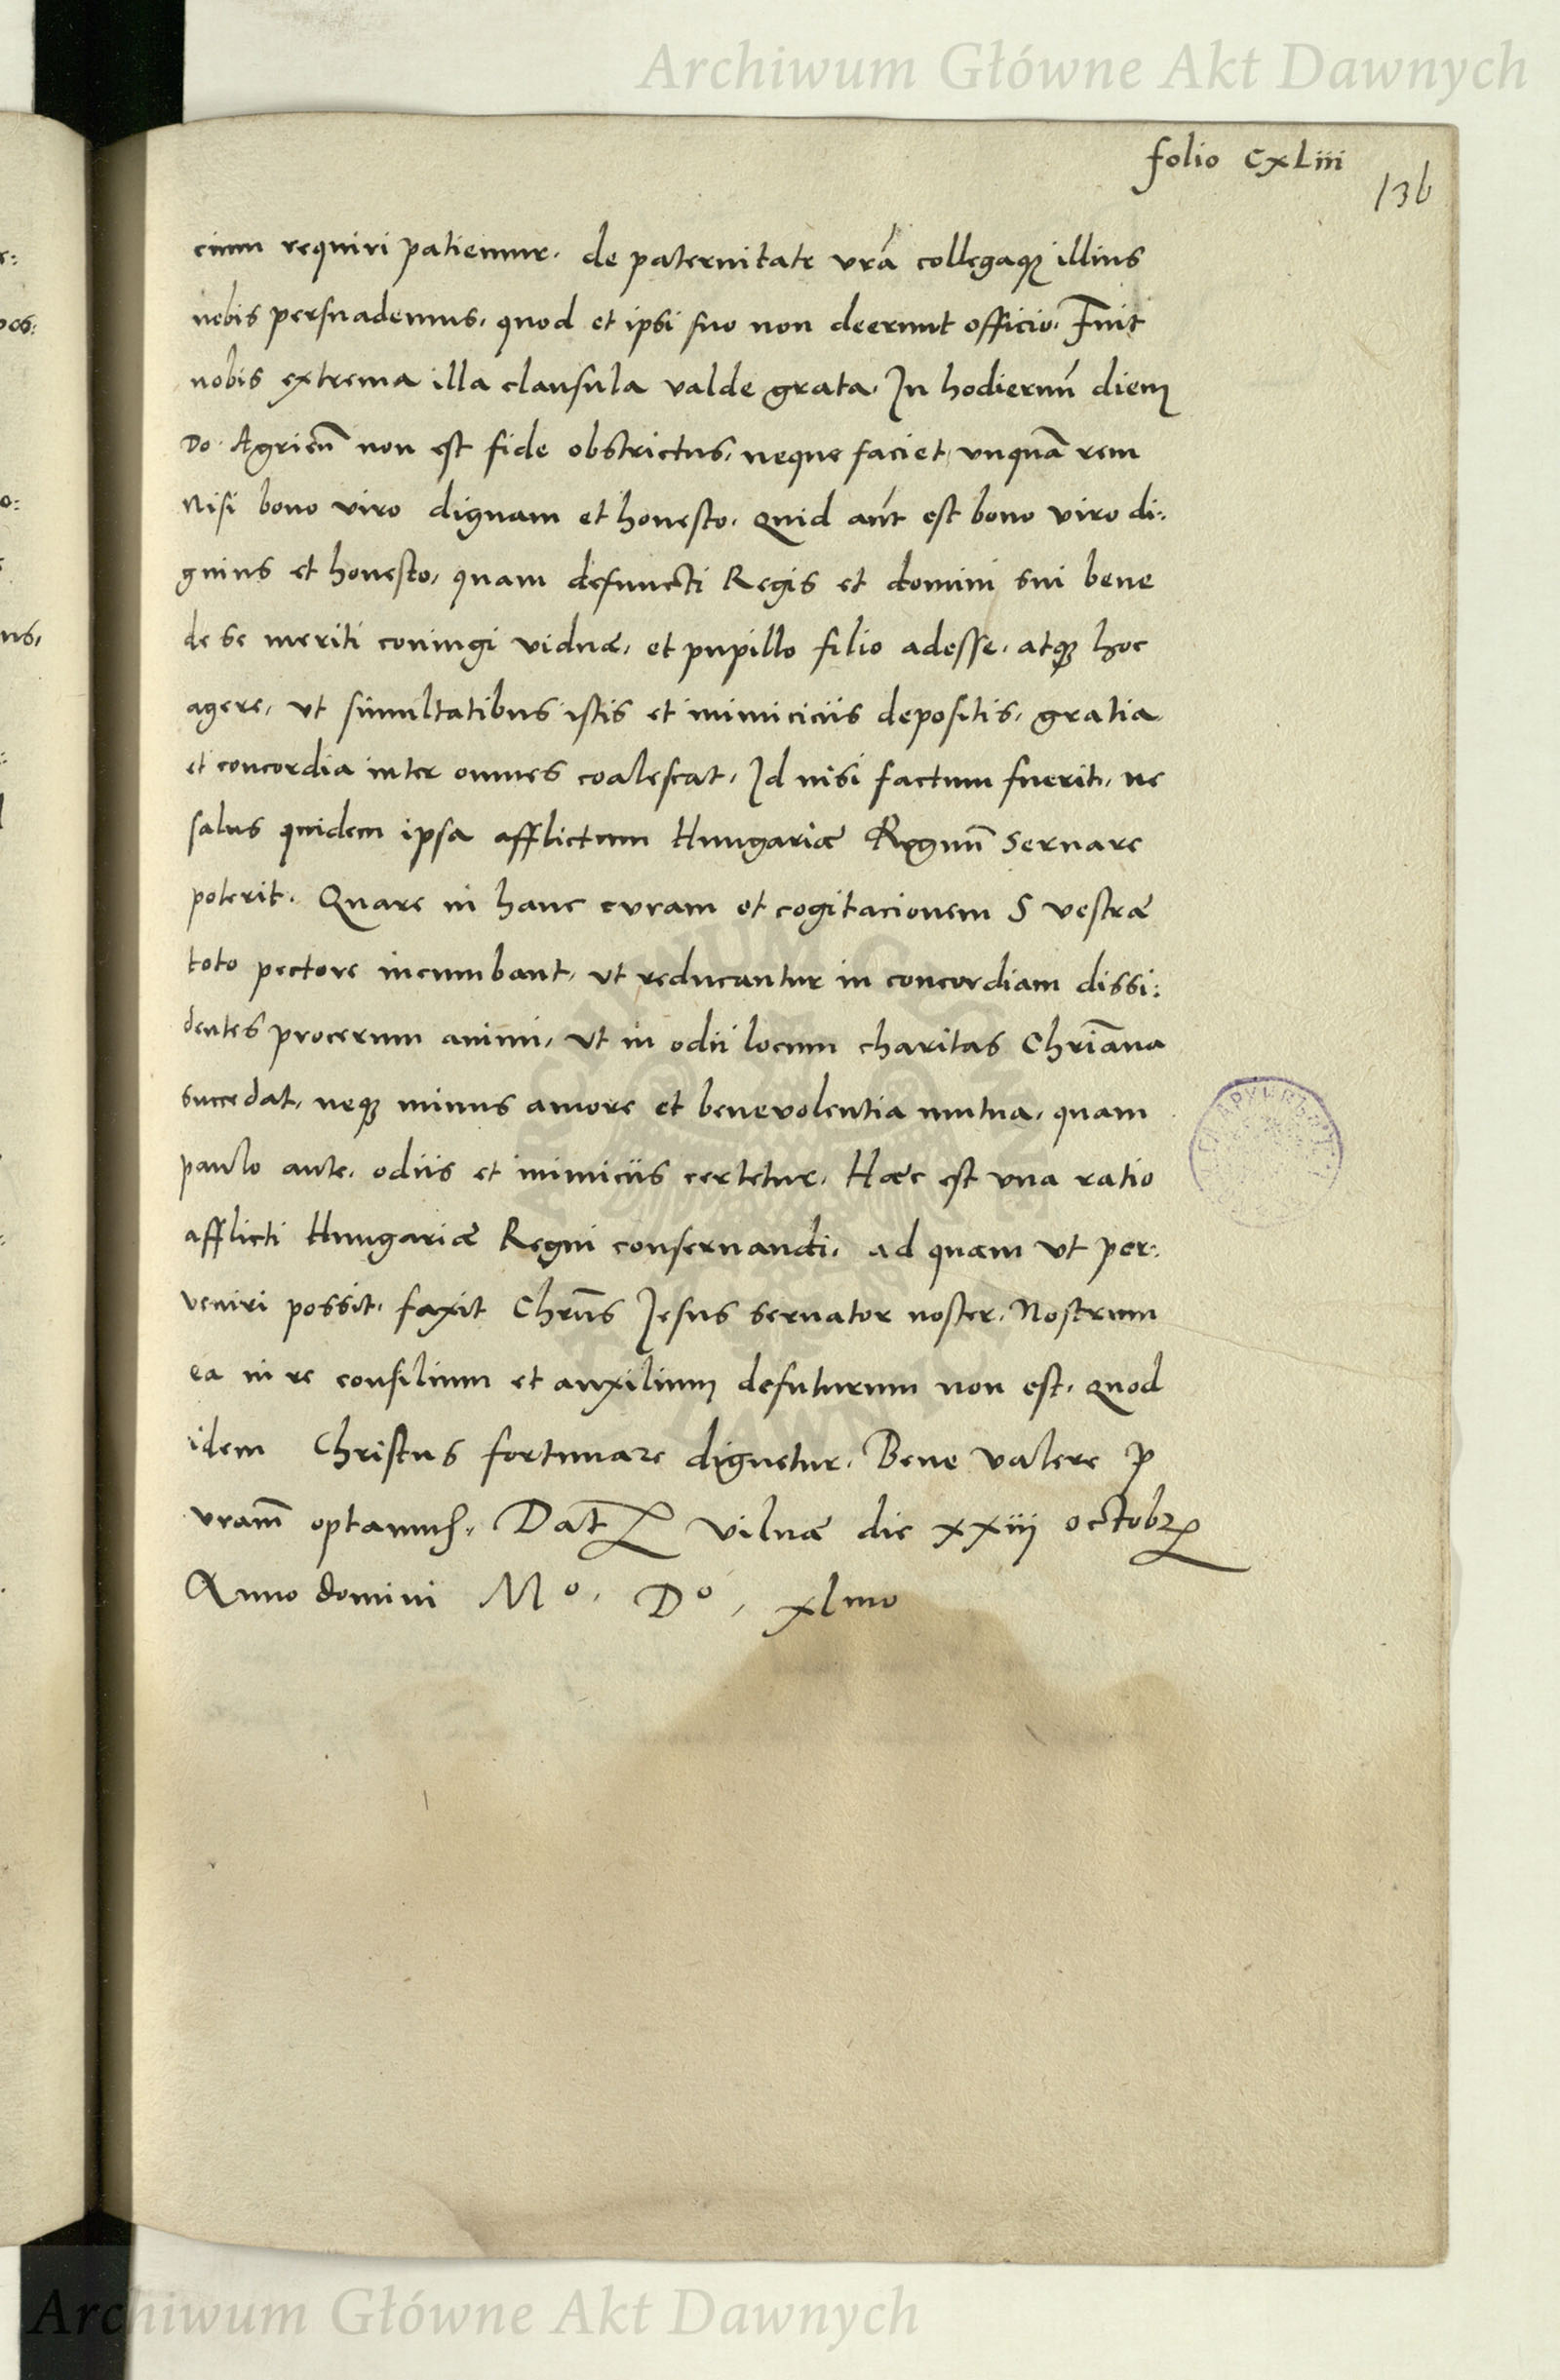 Archiwum Główne Akt Dawnych
folio CxLiii
136
cium requiri patiemur. de paternitate vrã collegaqꝫ illius
nobis persuademus, quod et ipsi suo non deerunt officio. Fuit
nobis extrema illa clausula valde grata. In hodiernũ diem
Do. Agrieñ non est fide obstrictus, neque faciet unquã rem
Nisi bono viro dignam et honesto. Quid aũt est bono viro di:
gnius et honesto, quam defuncti Regis et domini sui bene
de se meriti coniugi viduæ, et pupillo filio adesse, atqꝫ hoc
agere, ut simultatibus istis et inimiciciis depositis, gratia
et concordia inter omnes coalescat. Id nisi factum fuerit, ne
salus quidem ipsa afflictum Hungariæ Regnũ servare
poterit. Quare in hanc curam et cogitacionem S vestræ
toto pectore incumbant, ut reducantur in concordiam dissi:
dentes procerum animi, ut in odii locum charitas Chriãna
succedat, neqꝫ minus amore et benevolentia mutua, quam
paulo ante, odiis et inimiciis certetur. Hæc est una ratio
afflicti Hungariæ Regni conservandi, ad quam ut per:
veniri possit, faxit Chrũs Jesus servator noster. Nostrum
ea in re consilium et auxilium defuturum non est. quod
idem Christus fortunare dignetur. Bene valere p
vram̃ optamus. Dat Vilnæ die xxiij octobr
Anno domini Mº. Dº, xlmo
Archiwum Główne Akt Dawnych